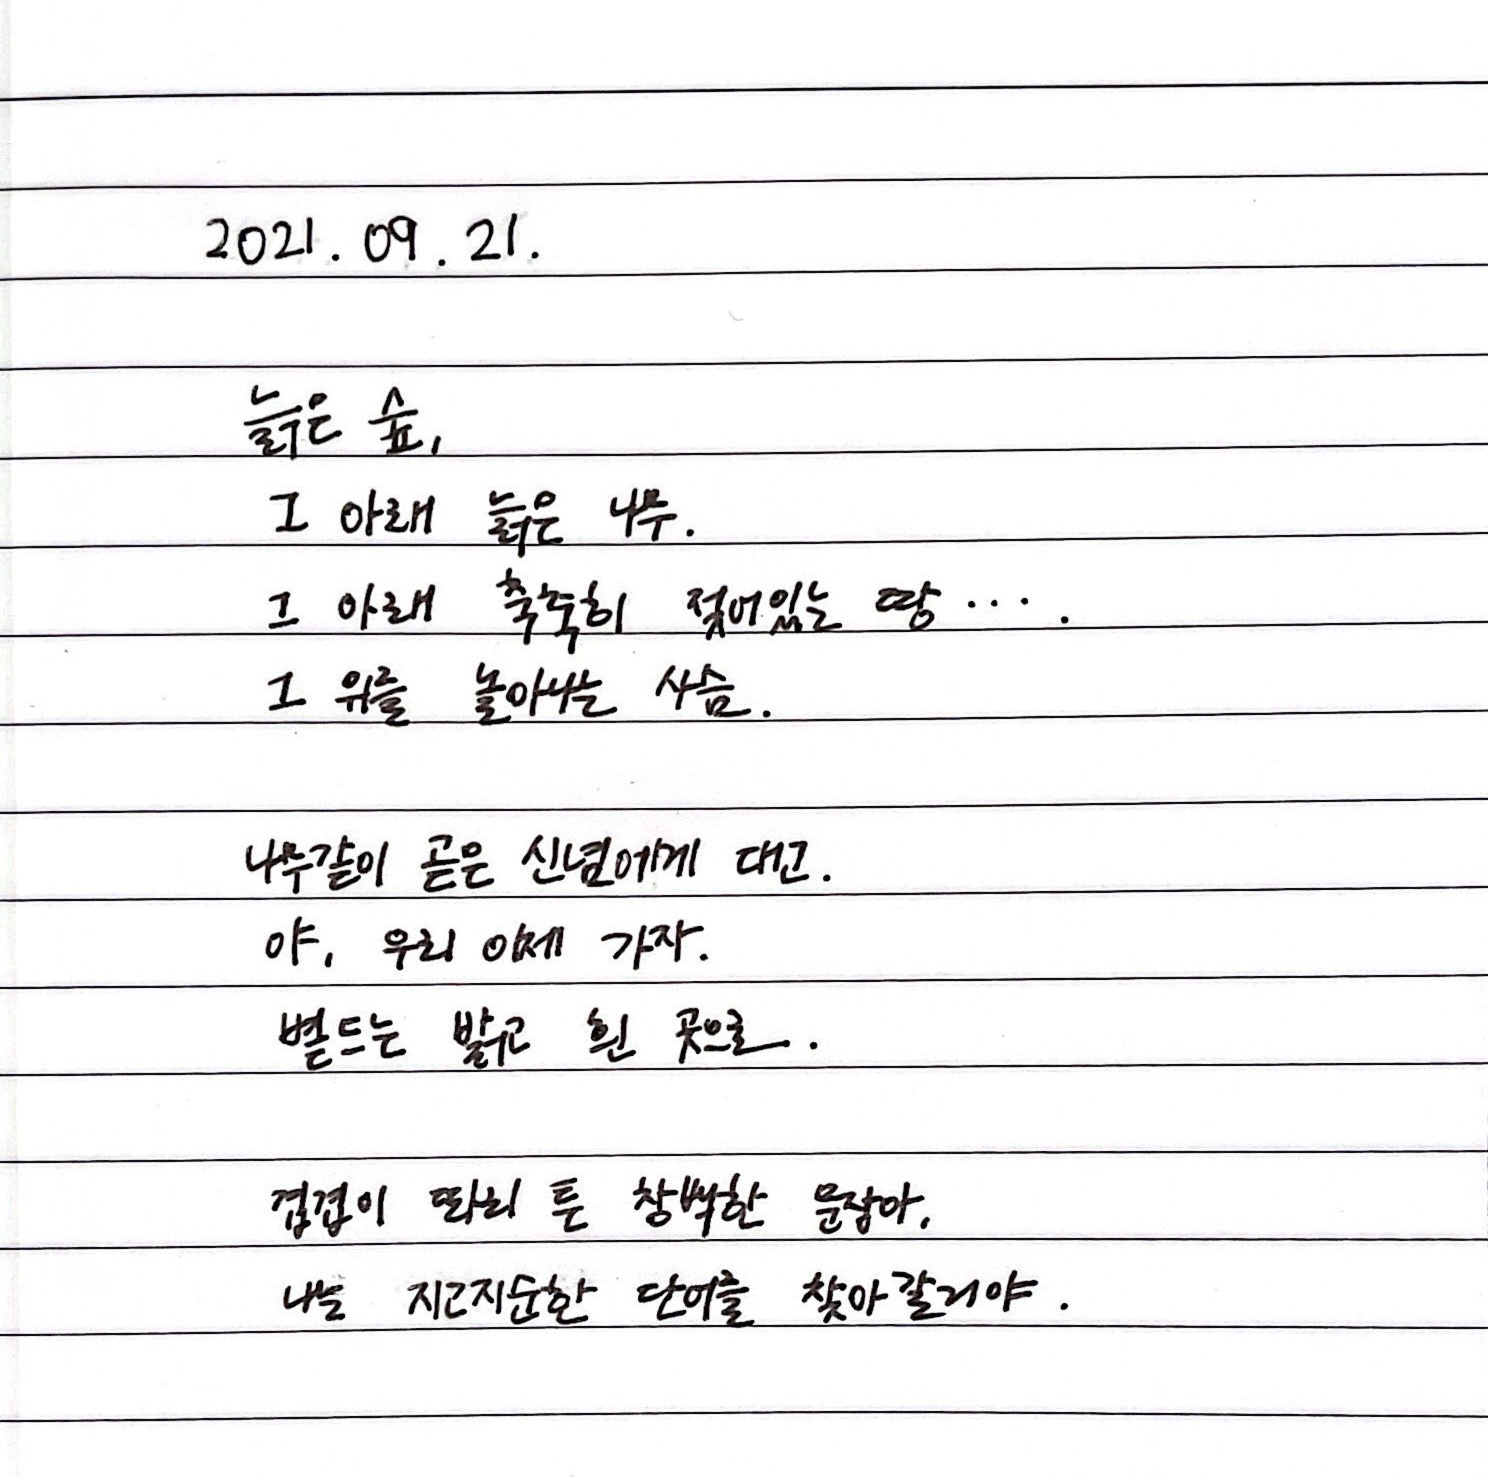 2021. 09. 21.
늙은 숲,
그 아래 늙은 나무.
그 아래 축축히 젖어있는 땅 ···.
그 위를 놀아나는 사슴.
나무같이 곧은 신념에게 대고.
야, 우리 이제 가자.
볕드는 밝고 흰 곳으로.
겹겹이 따리 튼 창백한 문장아,
나는 지고지순한 단어를 찾아갈거야.